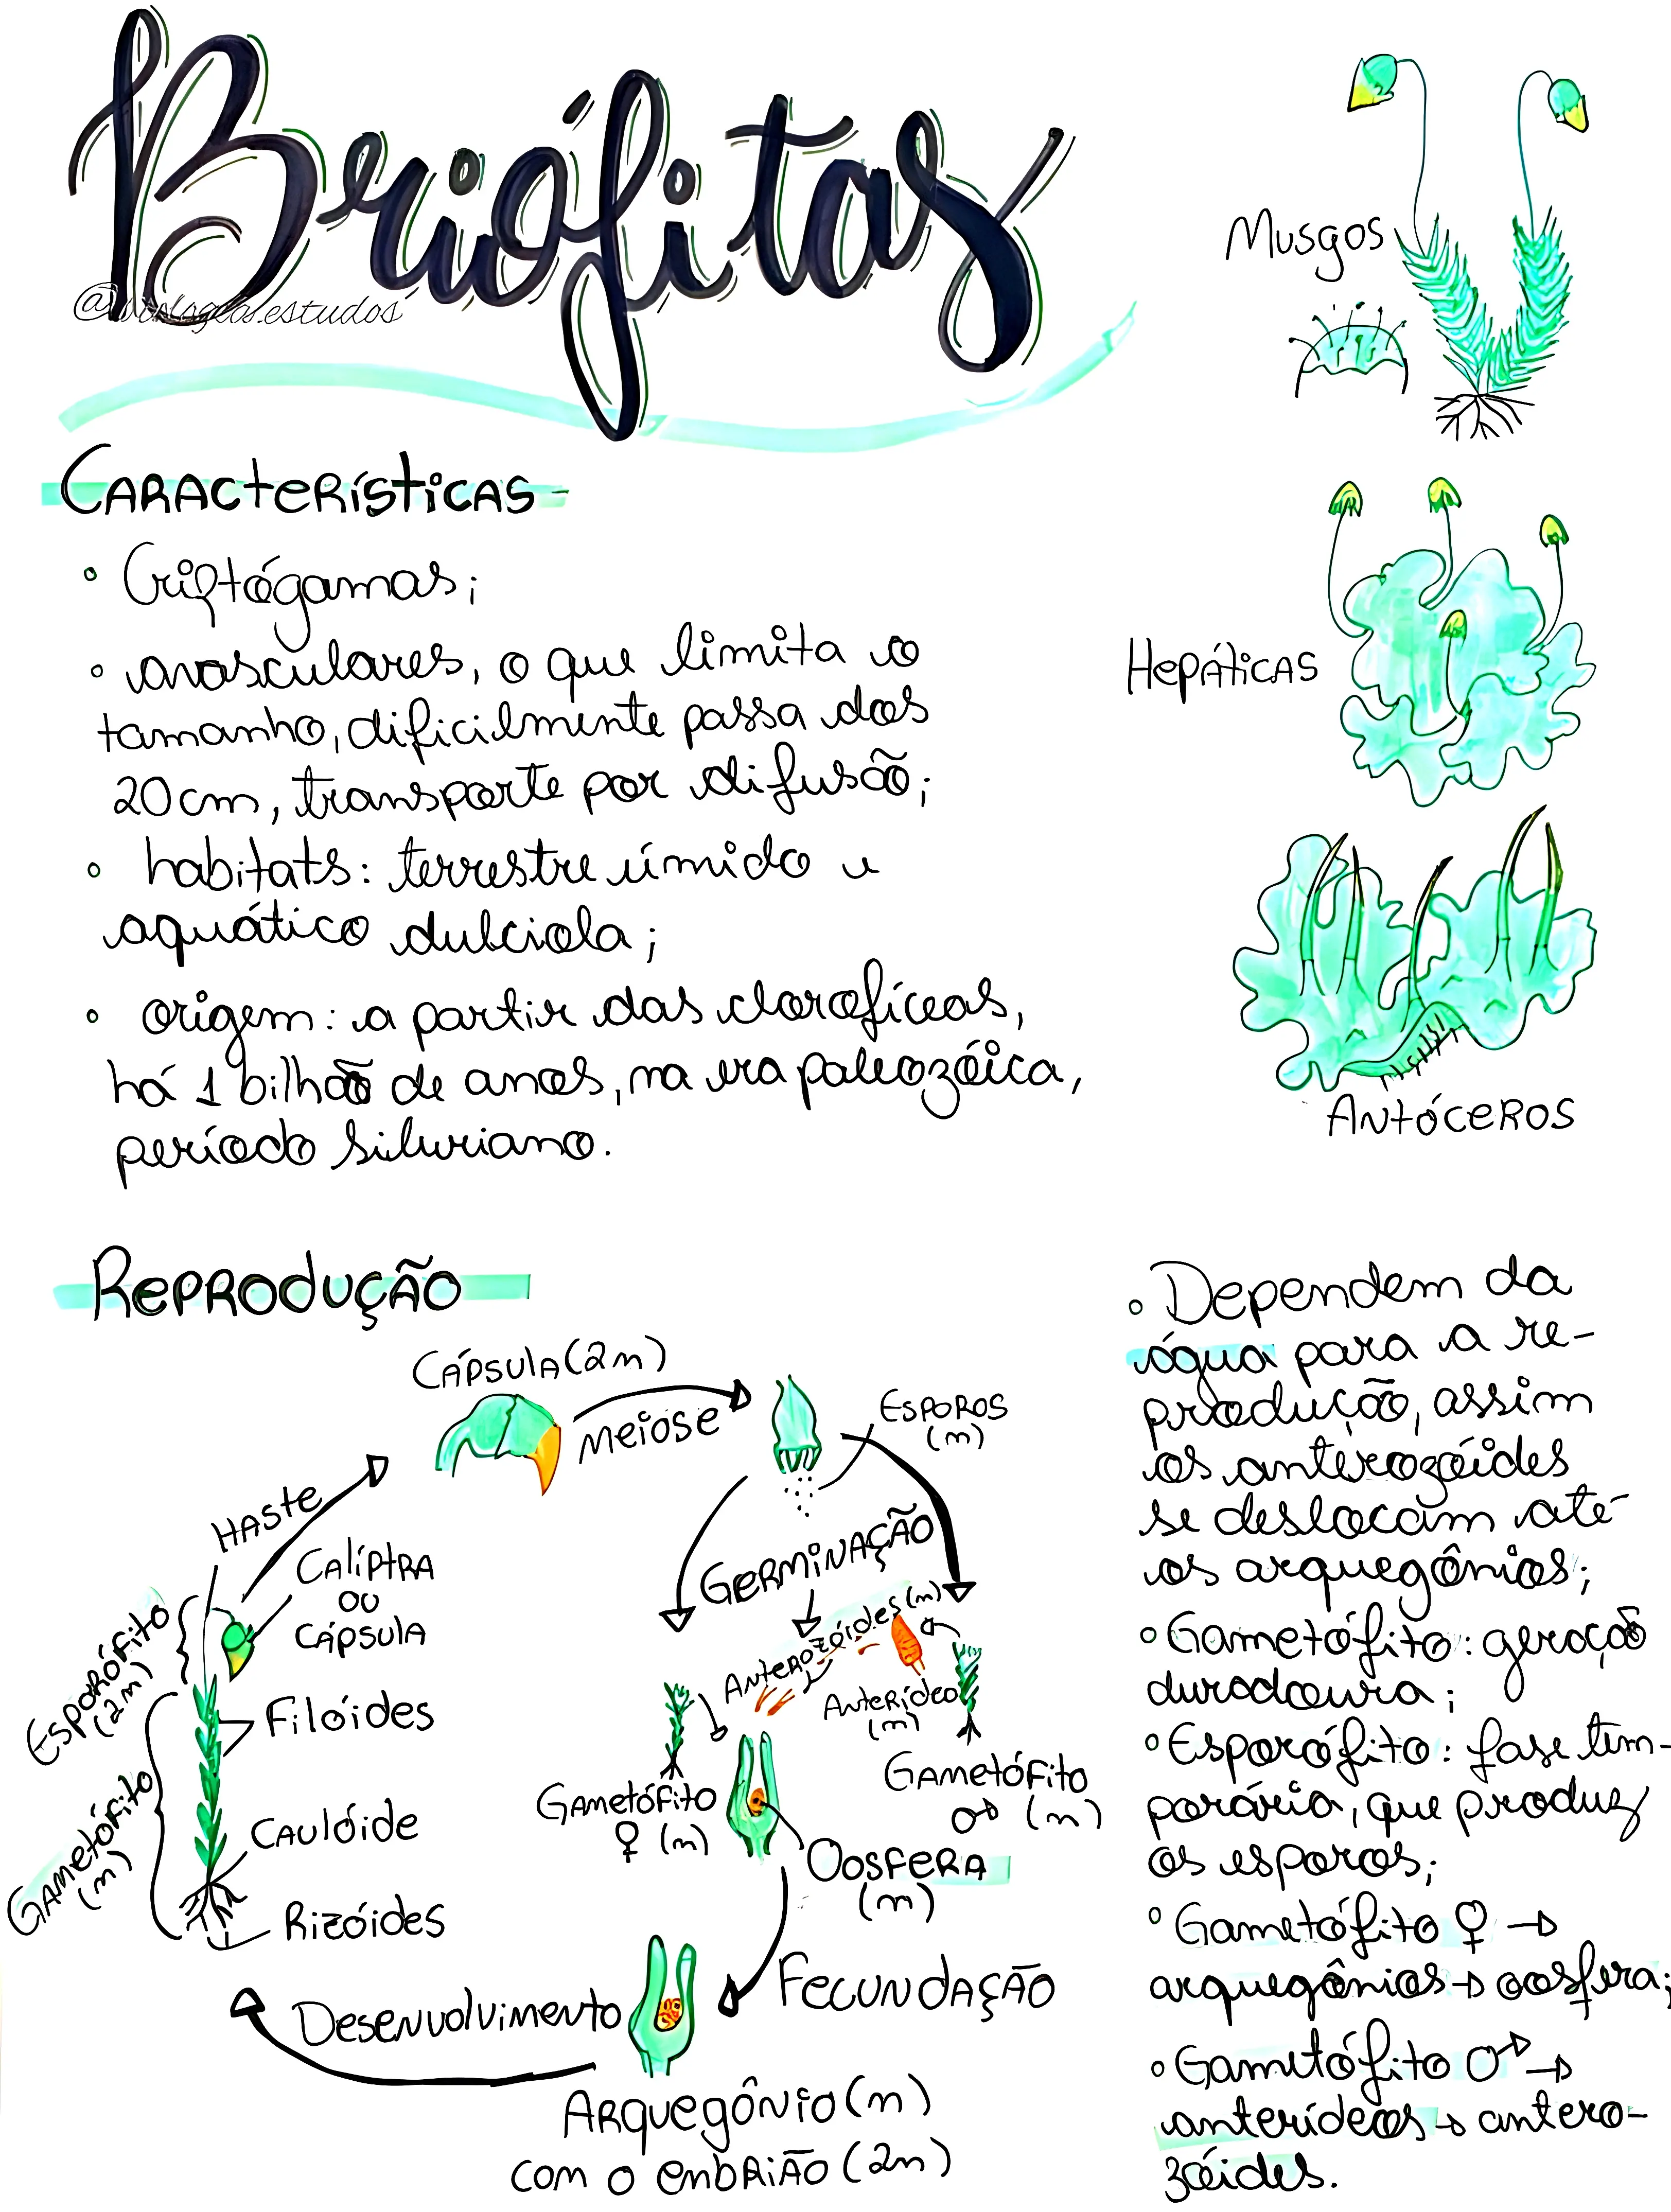 Briófitas
Musgos
Características
• Criptógamas;
• avasculares, o que limita o
tamanho, dificilmente passa dos
20cm, transporte por difusão;
Hepáticas
• habitats: terrestre úmido e
aquático dulciola;
• origem: a partir das clorofíceas,
há 1 bilhão de anos, na era paleozóica,
período siluriano.
Antóceros
Reprodução
Cápsula (2n)
Meiose
Esporos
(n)
Haste
Calíptra
ou
Cápsula
Esporófito
(2n)
Filóides
Caulóide
Gametófito
(n)
Rizóides
Germinação
Anterozóides (n)
Anterídeo
(n)
Gametófito
♀ (n)
Gametófito
♂ (n)
Oosfera
(n)
Fecundação
Desenvolvimento
Arquegônio (n)
com o embrião (2n)
• Dependem da
água para a re-
produção, assim
os anterozóides
se deslocam até
os arquegônios;
• Gametófito: geração
duradoura;
• Esporófito: fase tem-
porária, que produz
os esporos;
• Gametófito ♀ →
arquegônios → oosfera;
• Gametófito ♂ →
anterídeos → antero-
zóides.